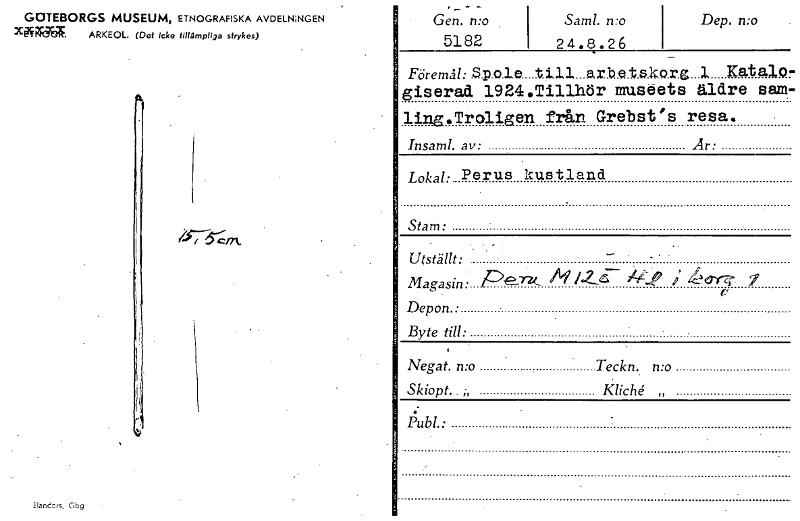 GÖTEBORGS MUSEUM, ETNOGRAFISKA AVDELNINGEN
ARKEOL. (Det icke tillämpliga strykes)
15,5cm
Elanders, Gbg
Gen. n:o Saml. n:o Dep. n:o
5182 24.8.26
Föremål: Spole till arbetskorg 1 Katalo-
giserad 1924.Tillhör muséets äldre sam-
ling.Troligen från Grebst's resa.
Insaml. av: År:
Lokal: Perus kustland
Stam:
Utställt:
Magasin: Peru M125 H2 i korg 1
Depon.:
Byte till:
Negat. n:o Teckn. n:o
Skiopt. „ Kliché „
Publ.: